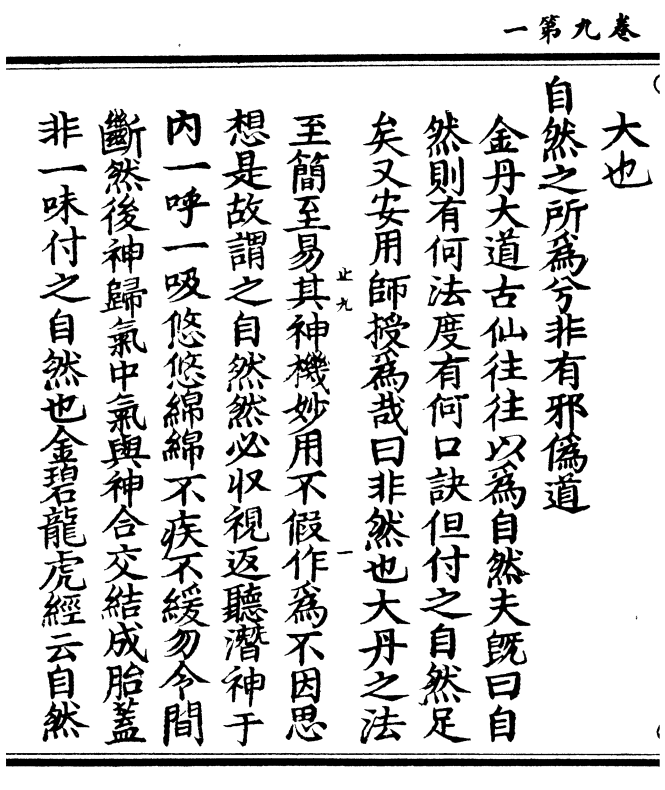 卷九第一
大也
自然之所爲兮非有邪僞道
金丹大道古仙往往以爲自然夫旣曰自
然則有何法度有何口訣但付之自然足
矣又安用師授爲哉曰非然也大丹之法
止九 一
至簡至易其神機妙用不假作爲不因思
想是故謂之自然然必収視返聽潛神于
內一呼一吸悠悠綿綿不疾不緩勿令間
斷然後神歸氣中氣與神合交結成胎蓋
非一味付之自然也金碧龍虎經云自然